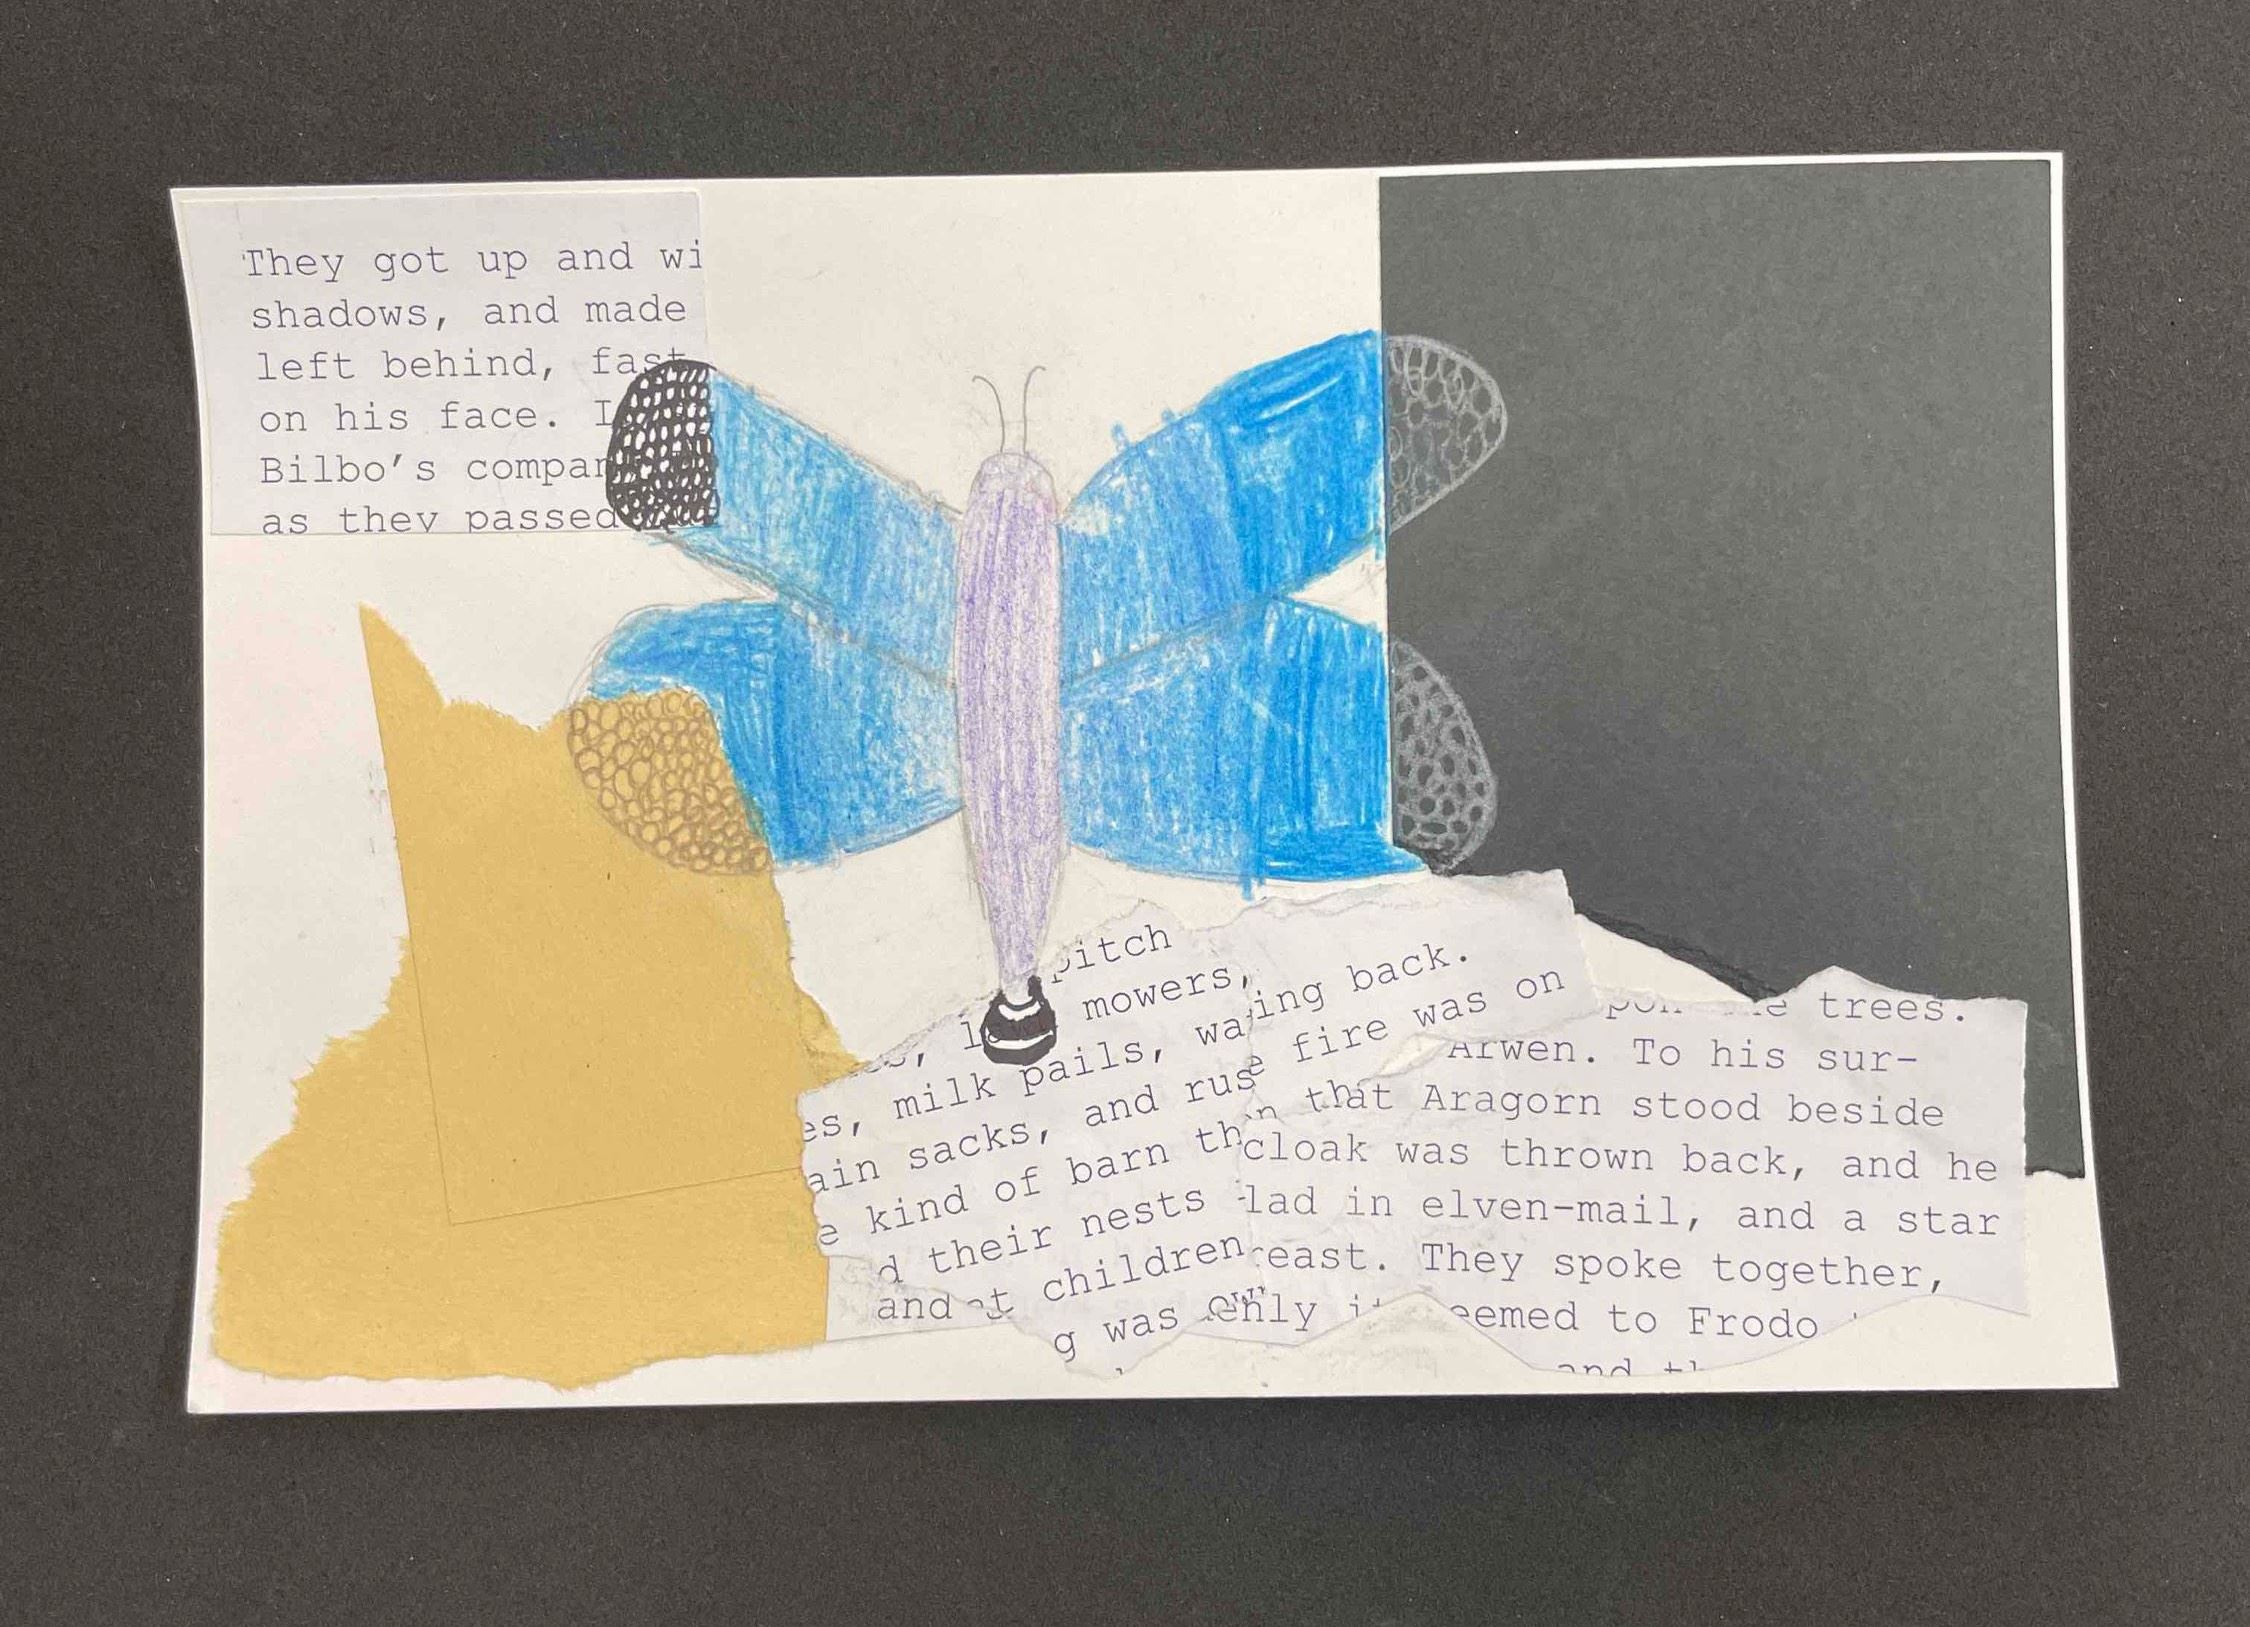 They got up and wi
shadows, and made
left behind, fast
on his face. I
Bilbo's compan
as they passed
pitch
mowers,
es, milk pails, wa
ain sacks, and rus
e kind of barn th
d their nests
at children
g was
ing back.
e fire was on
trees.
Arwen. To his sur-
n that Aragorn stood beside
cloak was thrown back, and he
lad in elven-mail, and a star
reast. They spoke together,
eemed to Frodo
and